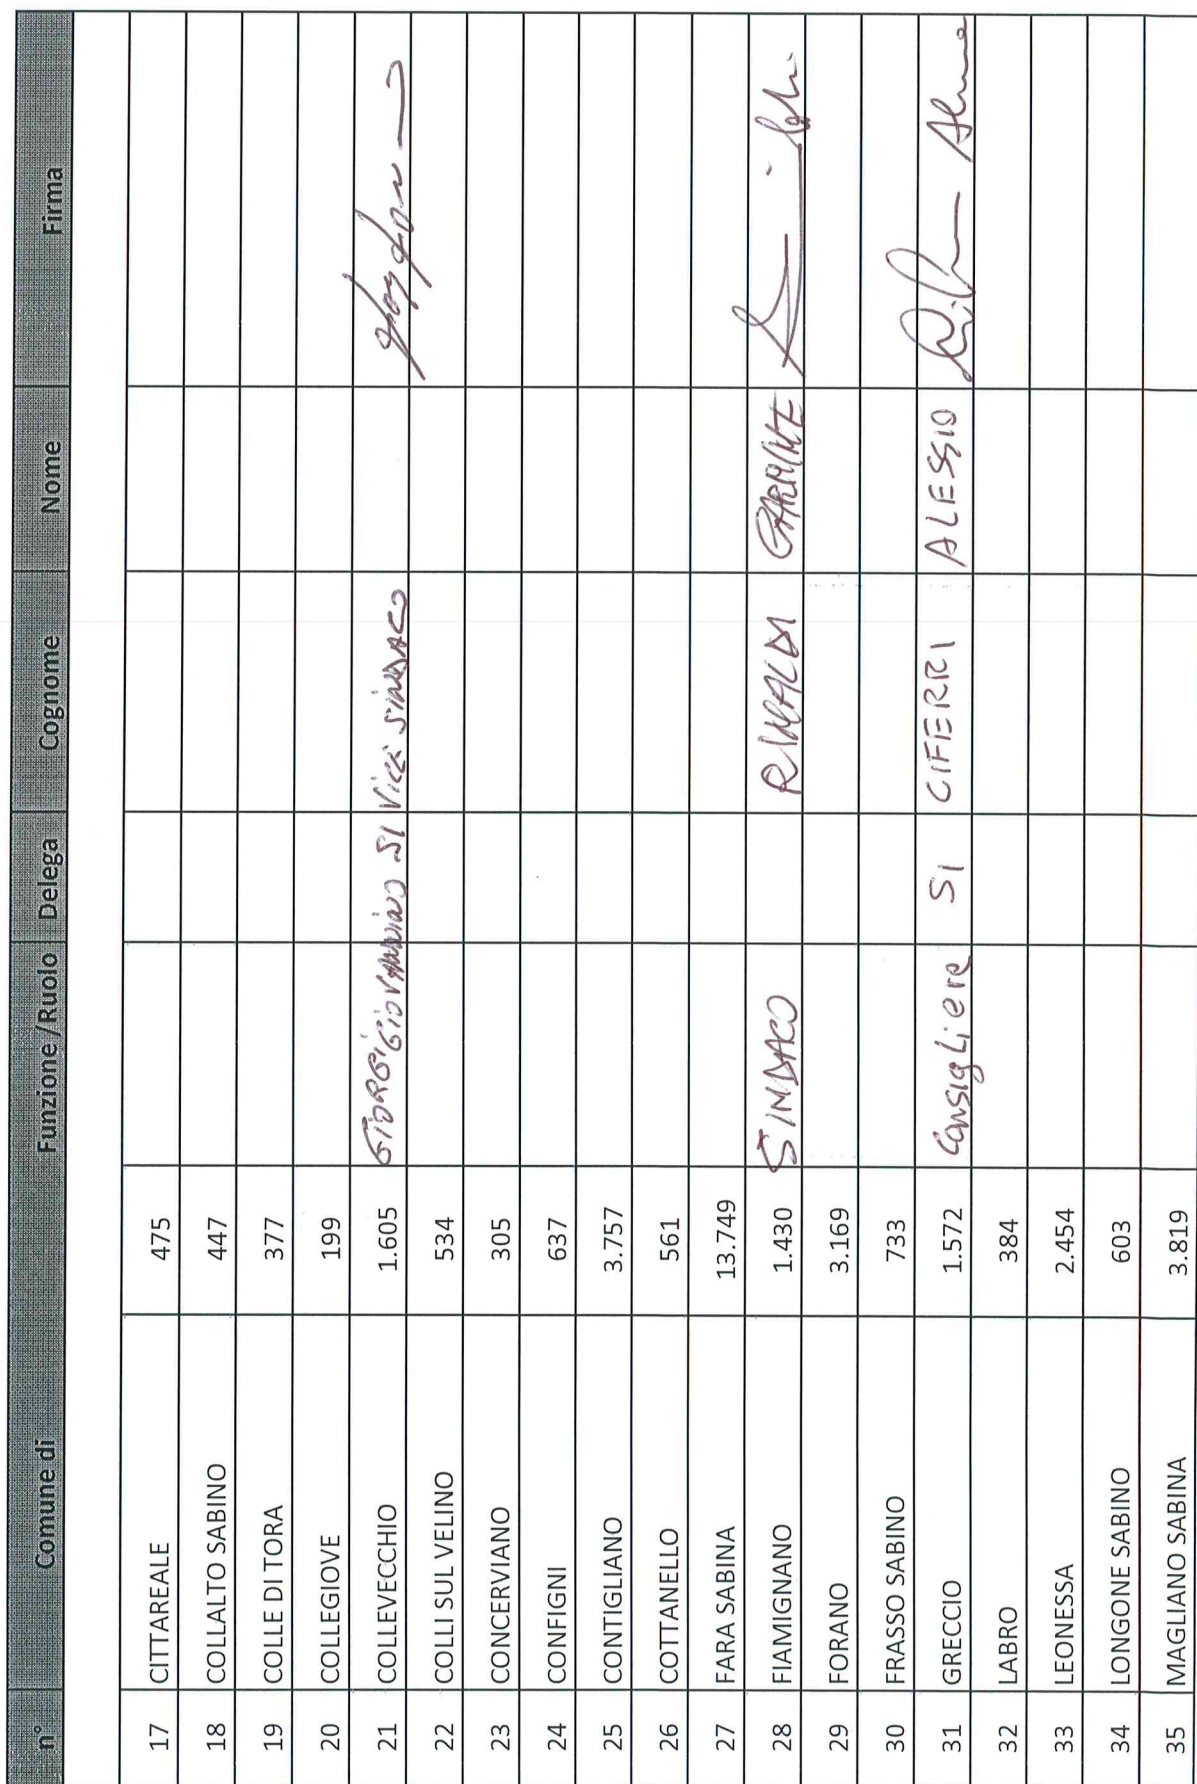 n° Comune di Funzione/Ruolo Delega Cognome Nome Firma
17 CITTAREALE 475
18 COLLALTO SABINO 447
19 COLLE DI TORA 377
20 COLLEGIOVE 199
21 COLLEVECCHIO 1.605 GIORGI GIOVANNINO SI Vice SINDACO
22 COLLI SUL VELINO 534
23 CONCERVIANO 305
24 CONFIGNI 637
25 CONTIGLIANO 3.757
26 COTTANELLO 561
27 FARA SABINA 13.749
28 FIAMIGNANO 1.430 SINDACO RINALDI CARMINE
29 FORANO 3.169
30 FRASSO SABINO 733
31 GRECCIO 1.572 Consigliere SI CIFERRI ALESSIO
32 LABRO 384
33 LEONESSA 2.454
34 LONGONE SABINO 603
35 MAGLIANO SABINA 3.819